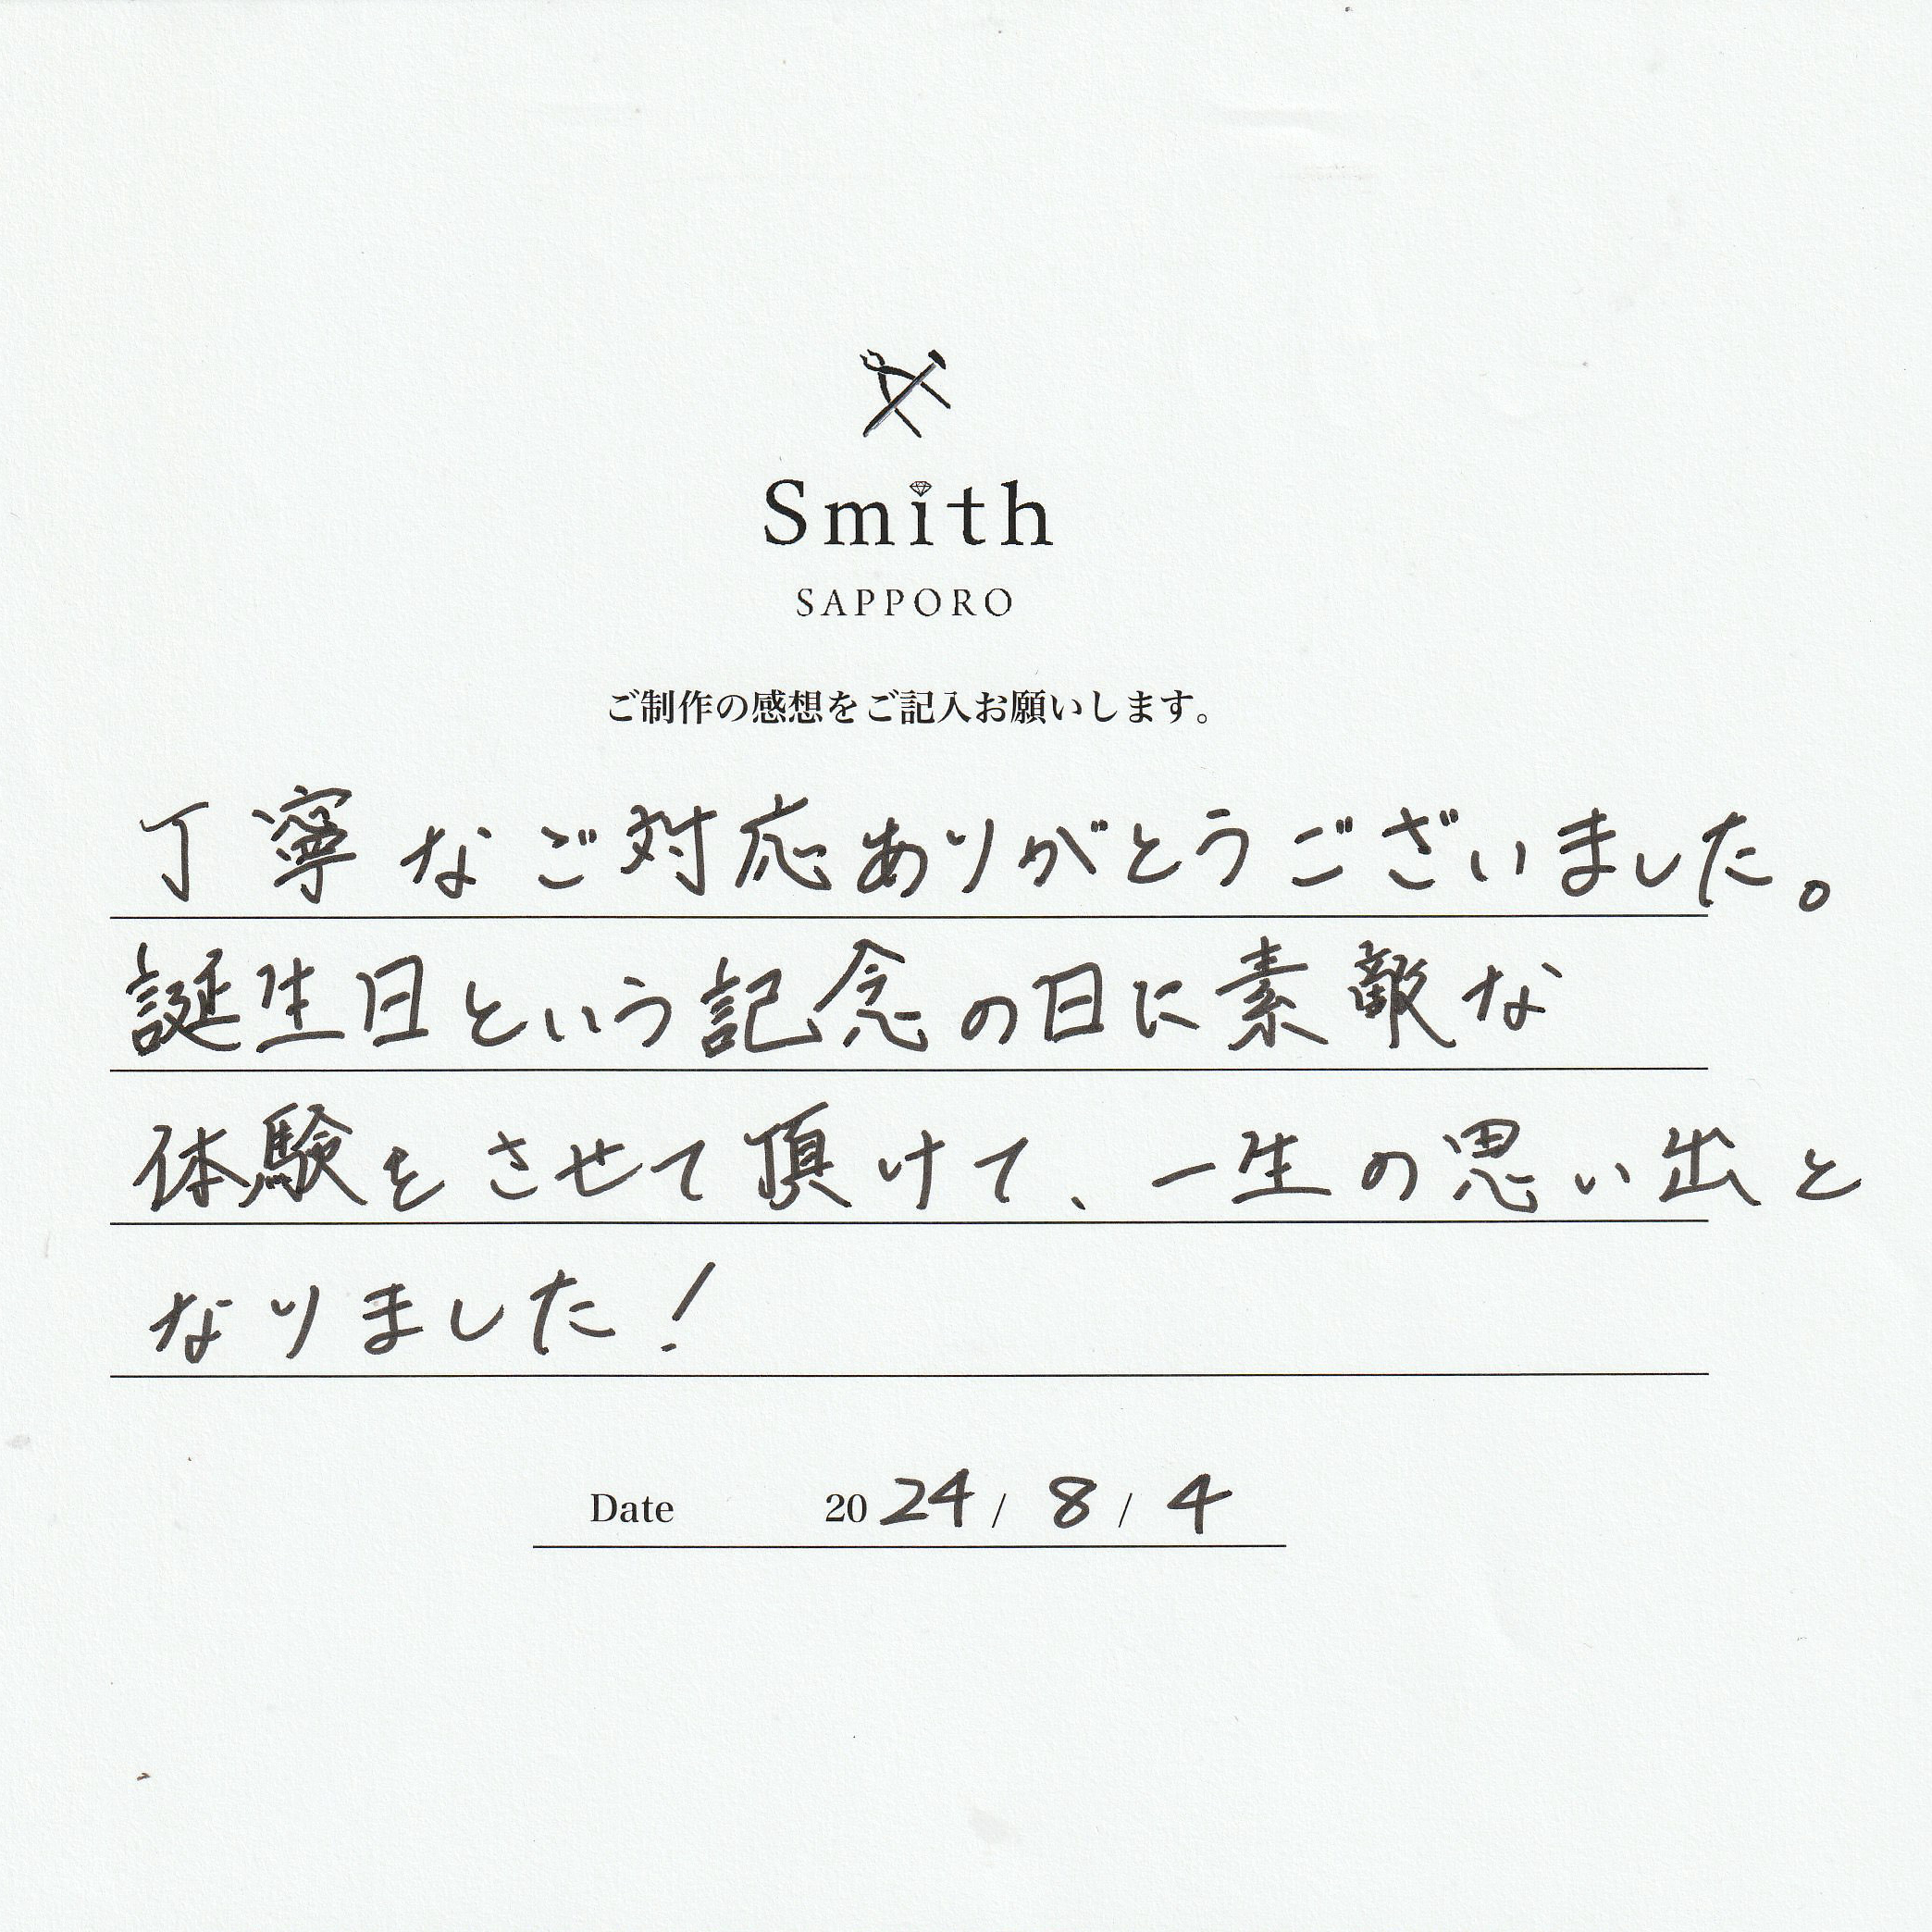 Smith
SAPPORO
ご制作の感想をご記入お願いします。
丁寧なご対応ありがとうございました。
誕生日という記念の日に素敵な
体験をさせて頂けて、一生の思い出と
なりました!
Date 2024/ 8/ 4